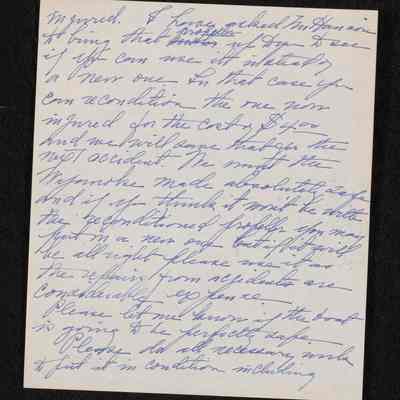 injured. I have asked Mr Hanson
to bring that propeller up Dye to see
if you can use it instead of
a new one In that case you
can recondition the one now
injured for the cost of $4.00
and we will save that for the
next accident We must the
made absolutely safe
and if you think it won't be with
the reconditioned propeller you may
put in a new one but if it will
be all right please use it as
the repairs from accidents are
considerable expense
Please let me know if the boat
is going to be perfectly safe.
Please do all necessary work
to put it in condition including